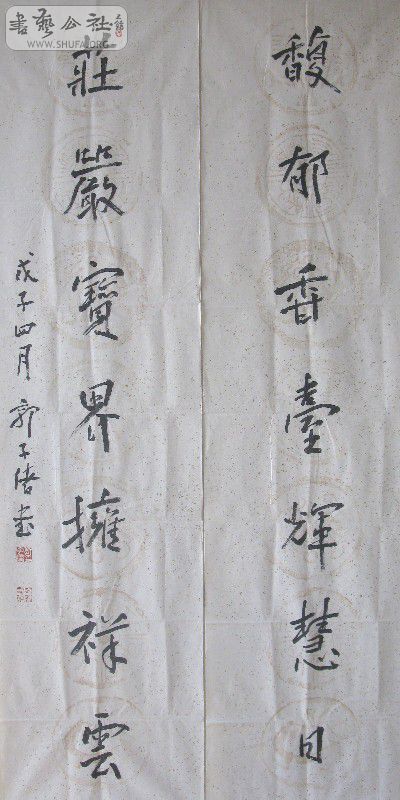 馥郁香臺輝慧日
莊嚴寶界擁祥雲
戊子四月 郭子緒書
書藝公社
WWW.SHUFA.ORG